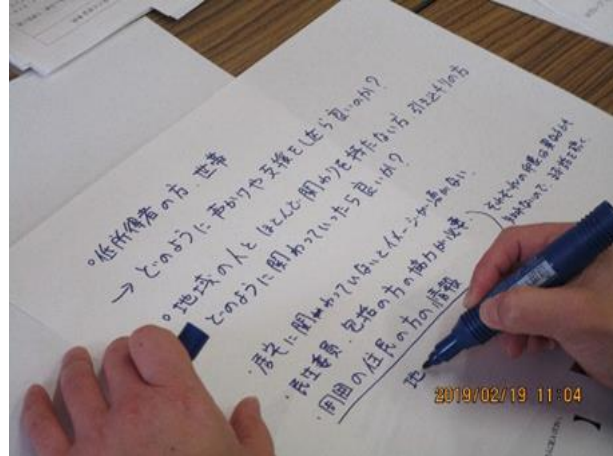 。低所得者の方 世帯
→ どのように声かけや支援をしたら良いのか?
。地域の人とほとんど関わりを持たない方 引きこもりの方
どのように関わっていったら良いか?
・居宅に関わっていないとイメージが湧かない
・民生委員、包括の方の協力が必要
・周囲の住民の方の情報
それぞれの
地
2019/02/19 11:04